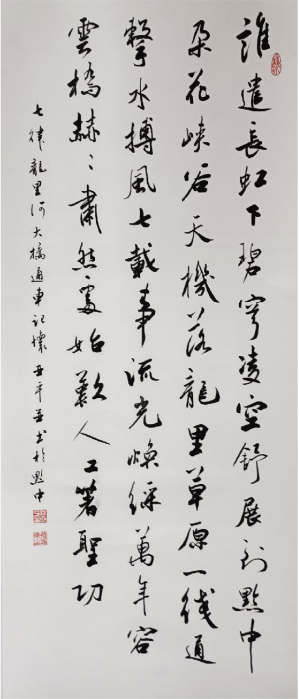 誰遣長虹下碧穹凌空舒展到黔中
朵花峽谷天機落龍里草原一綫通
擊水搏風七載事流光煥綵萬年容
雲橋赫〻肅然處始歎人工著聖功
七律龍里河大橋通車記懷亞平並书於黔中